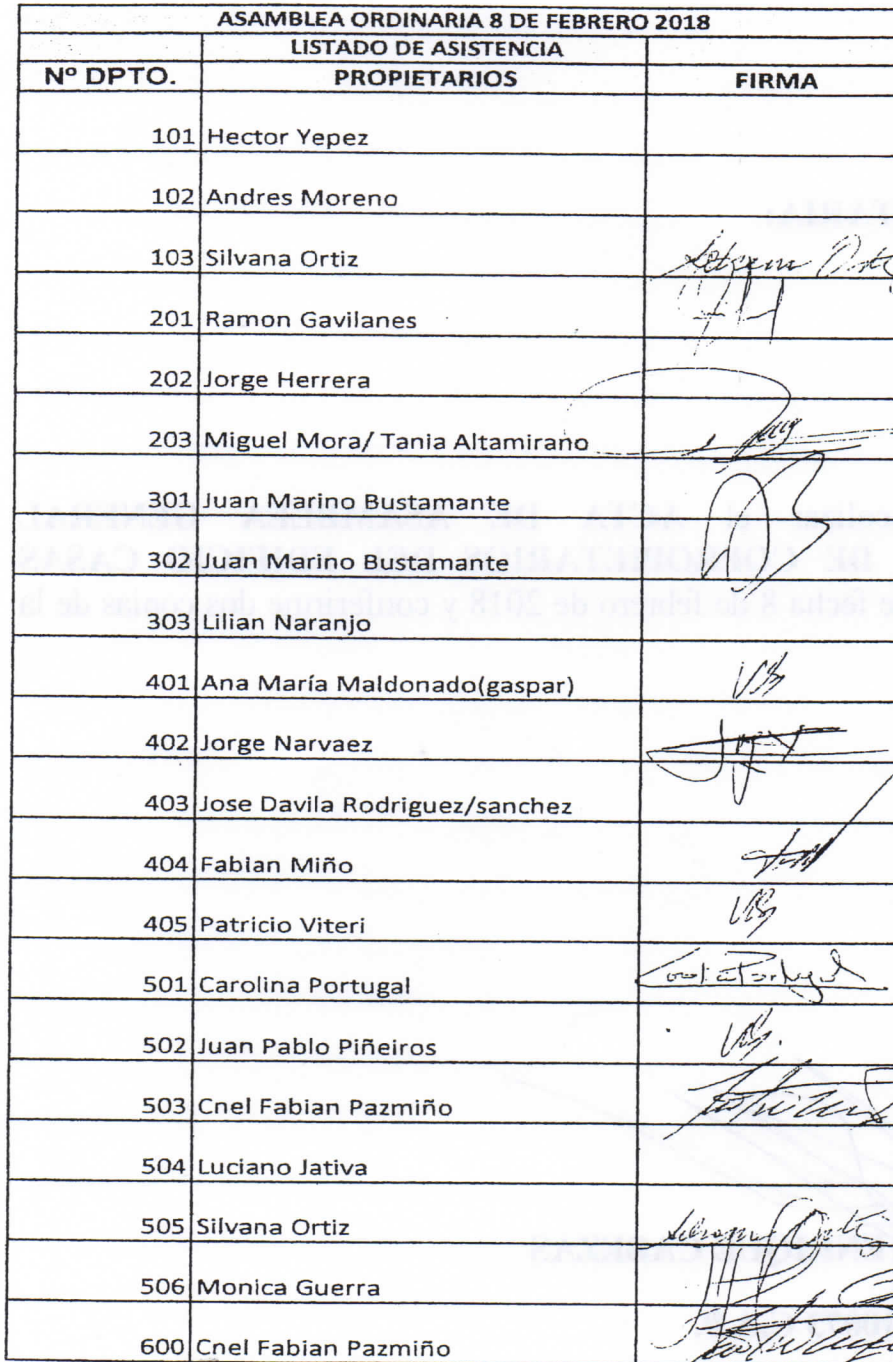 ASAMBLEA ORDINARIA 8 DE FEBRERO 2018
LISTADO DE ASISTENCIA
Nº DPTO. PROPIETARIOS FIRMA
101 Hector Yepez
102 Andres Moreno
103 Silvana Ortiz
201 Ramon Gavilanes
202 Jorge Herrera
203 Miguel Mora/ Tania Altamirano
301 Juan Marino Bustamante
302 Juan Marino Bustamante
303 Lilian Naranjo
401 Ana María Maldonado(gaspar)
402 Jorge Narvaez
403 Jose Davila Rodriguez/sanchez
404 Fabian Miño
405 Patricio Viteri
501 Carolina Portugal
502 Juan Pablo Piñeiros
503 Cnel Fabian Pazmiño
504 Luciano Jativa
505 Silvana Ortiz
506 Monica Guerra
600 Cnel Fabian Pazmiño